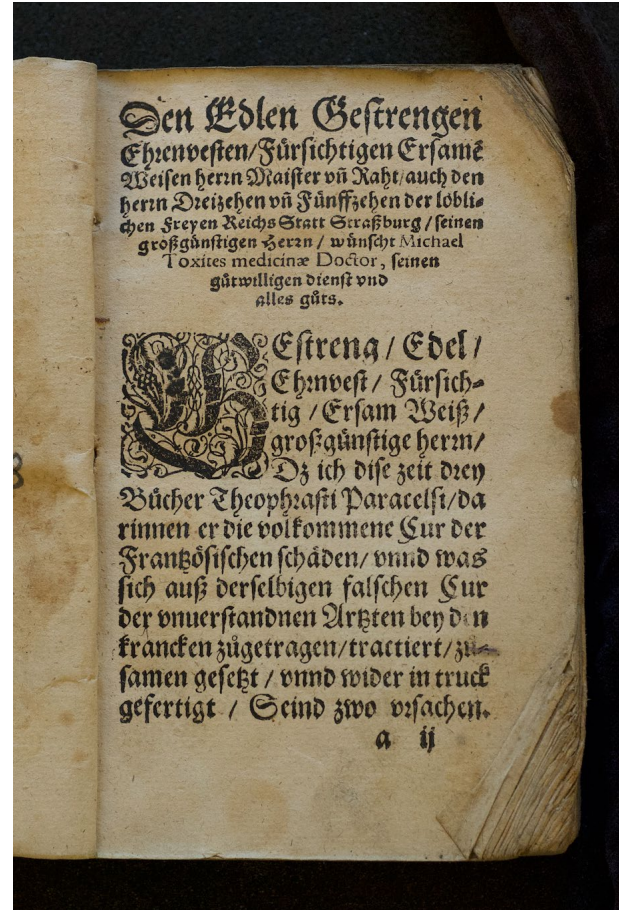 Den Edlen Gestrengen
Ehrenvesten/Fürsichtigen Ersamē
Weisen herrn Maister vn̄ Raht/auch den
herrn Dreizehen vn̄ Fünffzehen der lobli-
chen Freyen Reichs Statt Straßburg/seinen
großgünstigen Herrn/wünscht Michael
Toxites medicinæ Doctor, seinen
gůtwilligen dienst vnd
alles gůts.
GEstreng/Edel/
Ehrnvest/Fürsich-
tig/Ersam Weiß/
großgünstige herrn/
Dz ich dise zeit drey
Bücher Theophrasti Paracelsi/da
rinnen er die volkommene Cur der
Frantzösischen schäden/vnnd was
sich auß derselbigen falschen Cur
der vnuerstandnen Artzten bey den
krancken zůgetragen/tractiert/zu-
samen gesetzt/vnnd wider in truck
gefertigt/Seind zwo vrsachen.
a ij
8